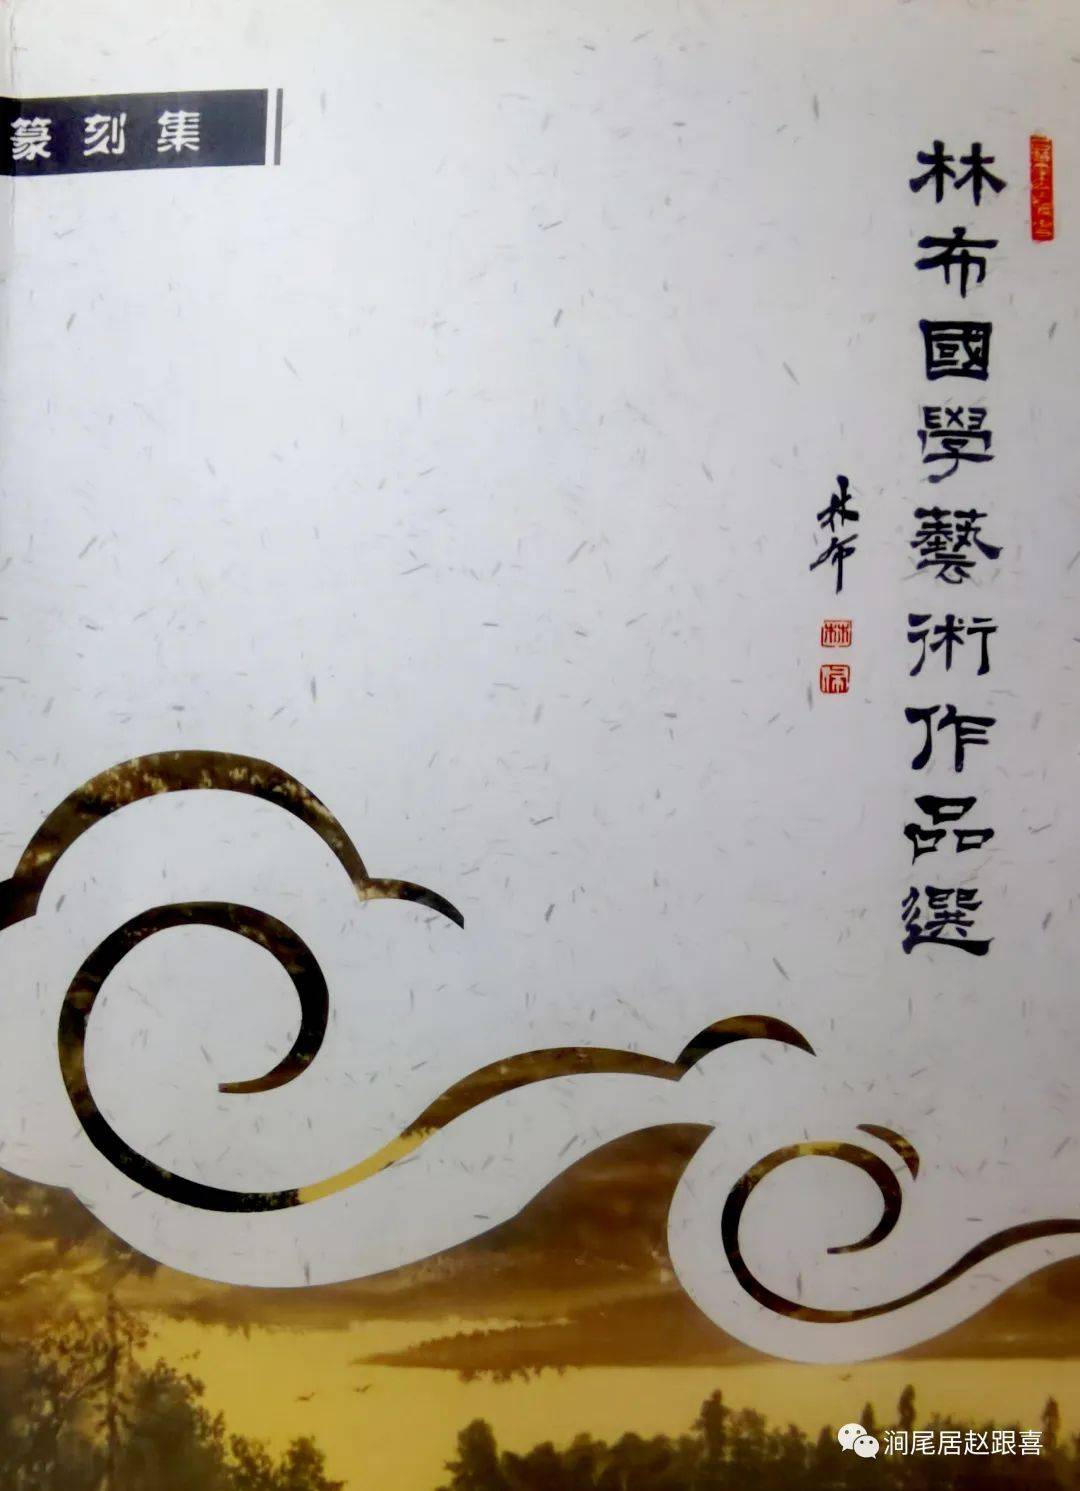 篆刻集
林布國學藝術作品選
林布
涧尾居赵跟喜